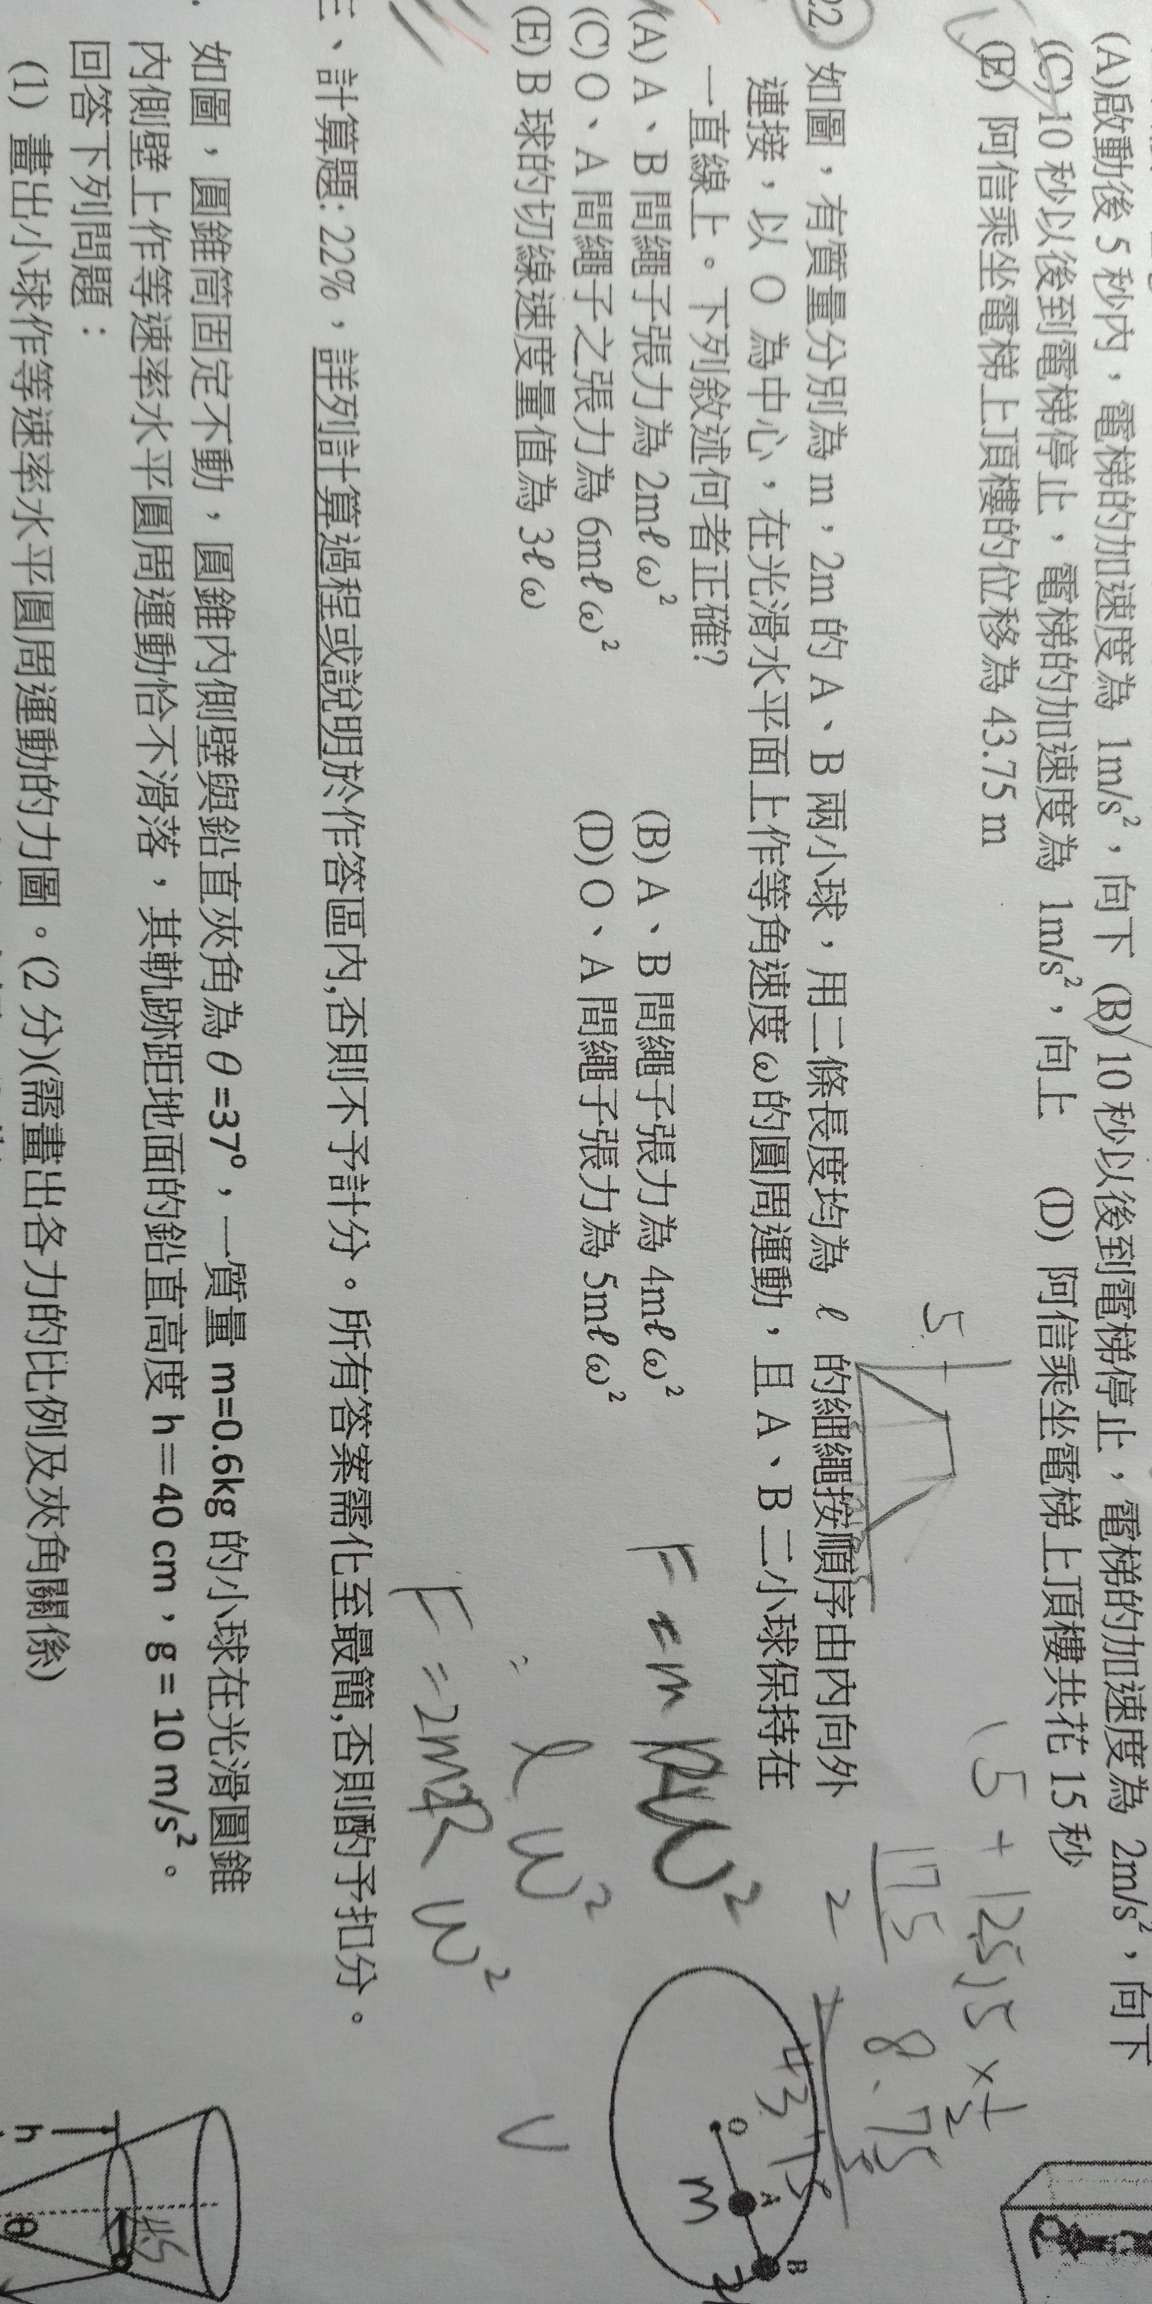 (A)啟動後 5 秒內，電梯的加速度為 1m/s²，向下 (B) 10 秒以後到電梯停止，電梯的加速度為 2m/s²，向下
(C) 10 秒以後到電梯停止，電梯的加速度為 1m/s²，向上 (D) 阿信乘坐電梯上頂樓共花 15 秒
(E) 阿信乘坐電梯上頂樓的位移為 43.75 m
5
15 + 12.5
15 × 1/2
17.5
2
8.75
43.75
22 如圖，有質量分別為 m，2m 的 A、B 兩小球，用二條長度均為 ℓ 的細繩按順序由內向外
連接，以 O 為中心，在光滑水平面上作等角速度ω的圓周運動，且 A、B 二小球保持在
一直線上。下列敘述何者正確?
(A) A、B 間繩子張力為 2mℓω² (B) A、B 間繩子張力為 4mℓω²
(C) O、A 間繩子之張力為 6mℓω² (D) O、A 間繩子張力為 5mℓω²
(E) B 球的切線速度量值為 3ℓω
F = m R W²
= ℓ W²
F = 2m R W²
V
O
A
B
m
三、計算題: 22%，詳列計算過程或說明於作答區內,否則不予計分。所有答案需化至最簡,否則酌予扣分。
如圖，圓錐筒固定不動，圓錐內側壁與鉛直夾角為 θ=37°，一質量 m=0.6kg 的小球在光滑圓錐
內側壁上作等速率水平圓周運動恰不滑落，其軌跡距地面的鉛直高度 h＝40 cm，g = 10 m/s²。
回答下列問題：
(1) 畫出小球作等速率水平圓周運動的力圖。(2 分)(需畫出各力的比例及夾角關係)
h
θ